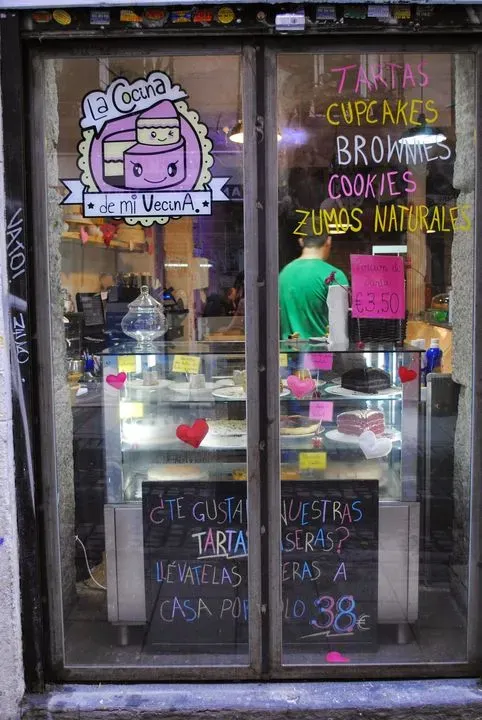 La Cocina
de mi VecinA.
TARTAS
CUPCAKES
BROWNIES
COOKIES
ZUMOS NATURALES
Porción de
tarta
€3,50
¿TE GUSTA NUESTRAS
TARTA ASERAS?
LLÉVATELAS ERAS A
CASA POR LO 38€